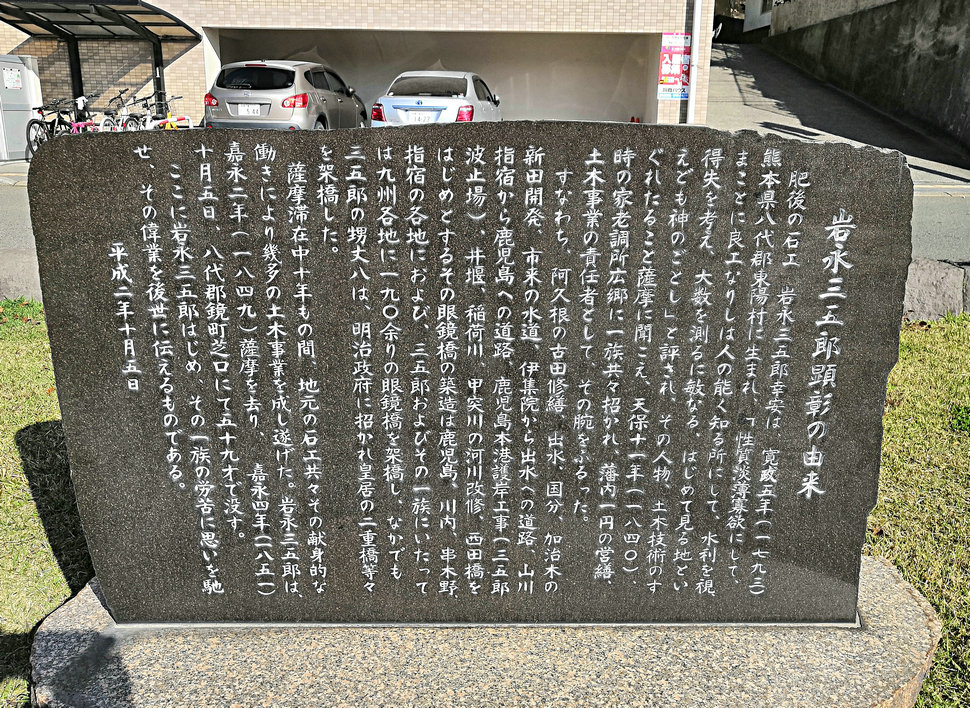 岩永三五郎顕彰の由来
肥後の石工　岩永三五郎幸安は、寛政五年（一七九三）
熊本県八代郡東陽村に生まれ、「性質淡薄寡欲にして、
まことに良工なりしは人の能く知る所にして、水利を視、
得失を考え、大数を測るに敏なる、はじめて見る地とい
えども神のごとし」と評され、その人物、土木技術のす
ぐれたること薩摩に聞こえ、天保十一年（一八四〇）
時の家老調所広郷に一族共々招かれ、藩内一円の営繕、
土木事業の責任者として、その腕をふるった。
すなわち、阿久根の古田修繕、出水、国分、加治木の
新田開発、市来の水道、伊集院から出水への道路、山川
指宿から鹿児島への道路、鹿児島本港護岸工事（三五郎
波止場）、井堰、稲荷川、甲突川の河川改修、西田橋を
はじめとするその眼鏡橋の築造は鹿児島、川内、串木野、
指宿の各地におよび、三五郎およびその一族にいたって
は九州各地に一九〇余りの眼鏡橋を架橋し、なかでも
三五郎の甥丈八は、明治政府に招かれ皇居の二重橋等々
を架橋した。
薩摩滞在中十年もの間、地元の石工共々その献身的な
働きにより幾多の土木事業を成し遂げた。岩永三五郎は、
嘉永二年（一八四九）薩摩を去り、嘉永四年（一八五一）
十月五日、八代郡鏡町芝口にて五十九才で没す。
ここに岩永三五郎はじめ、その一族の労苦に思いを馳
せ、その偉業を後世に伝えるものである。
平成二年十月五日